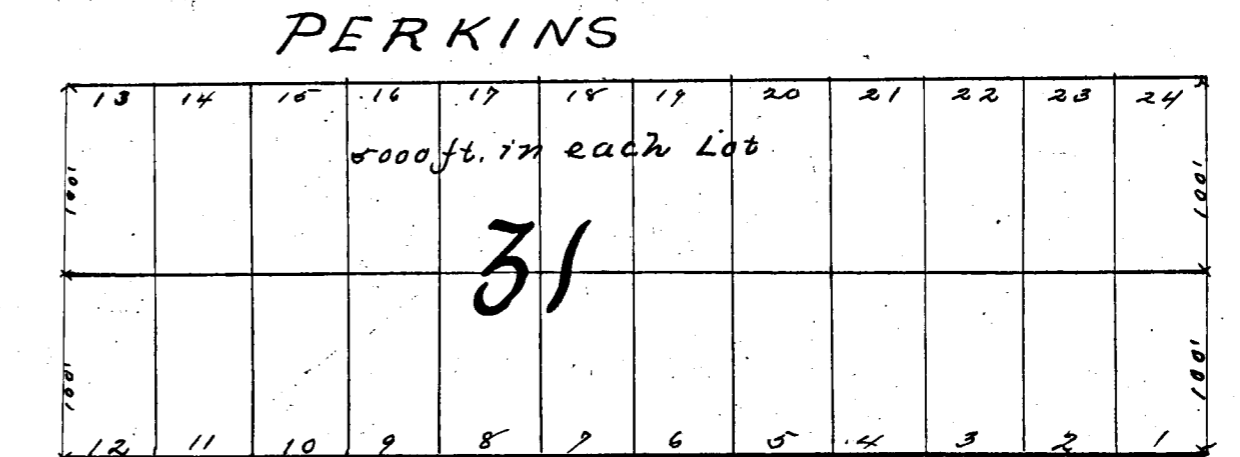 PERKINS
13 14 15 16 17 18 19 20 21 22 23 24
5000 ft. in each Lot
100' 100'
31
100' 100'
12 11 10 9 8 7 6 5 4 3 2 1